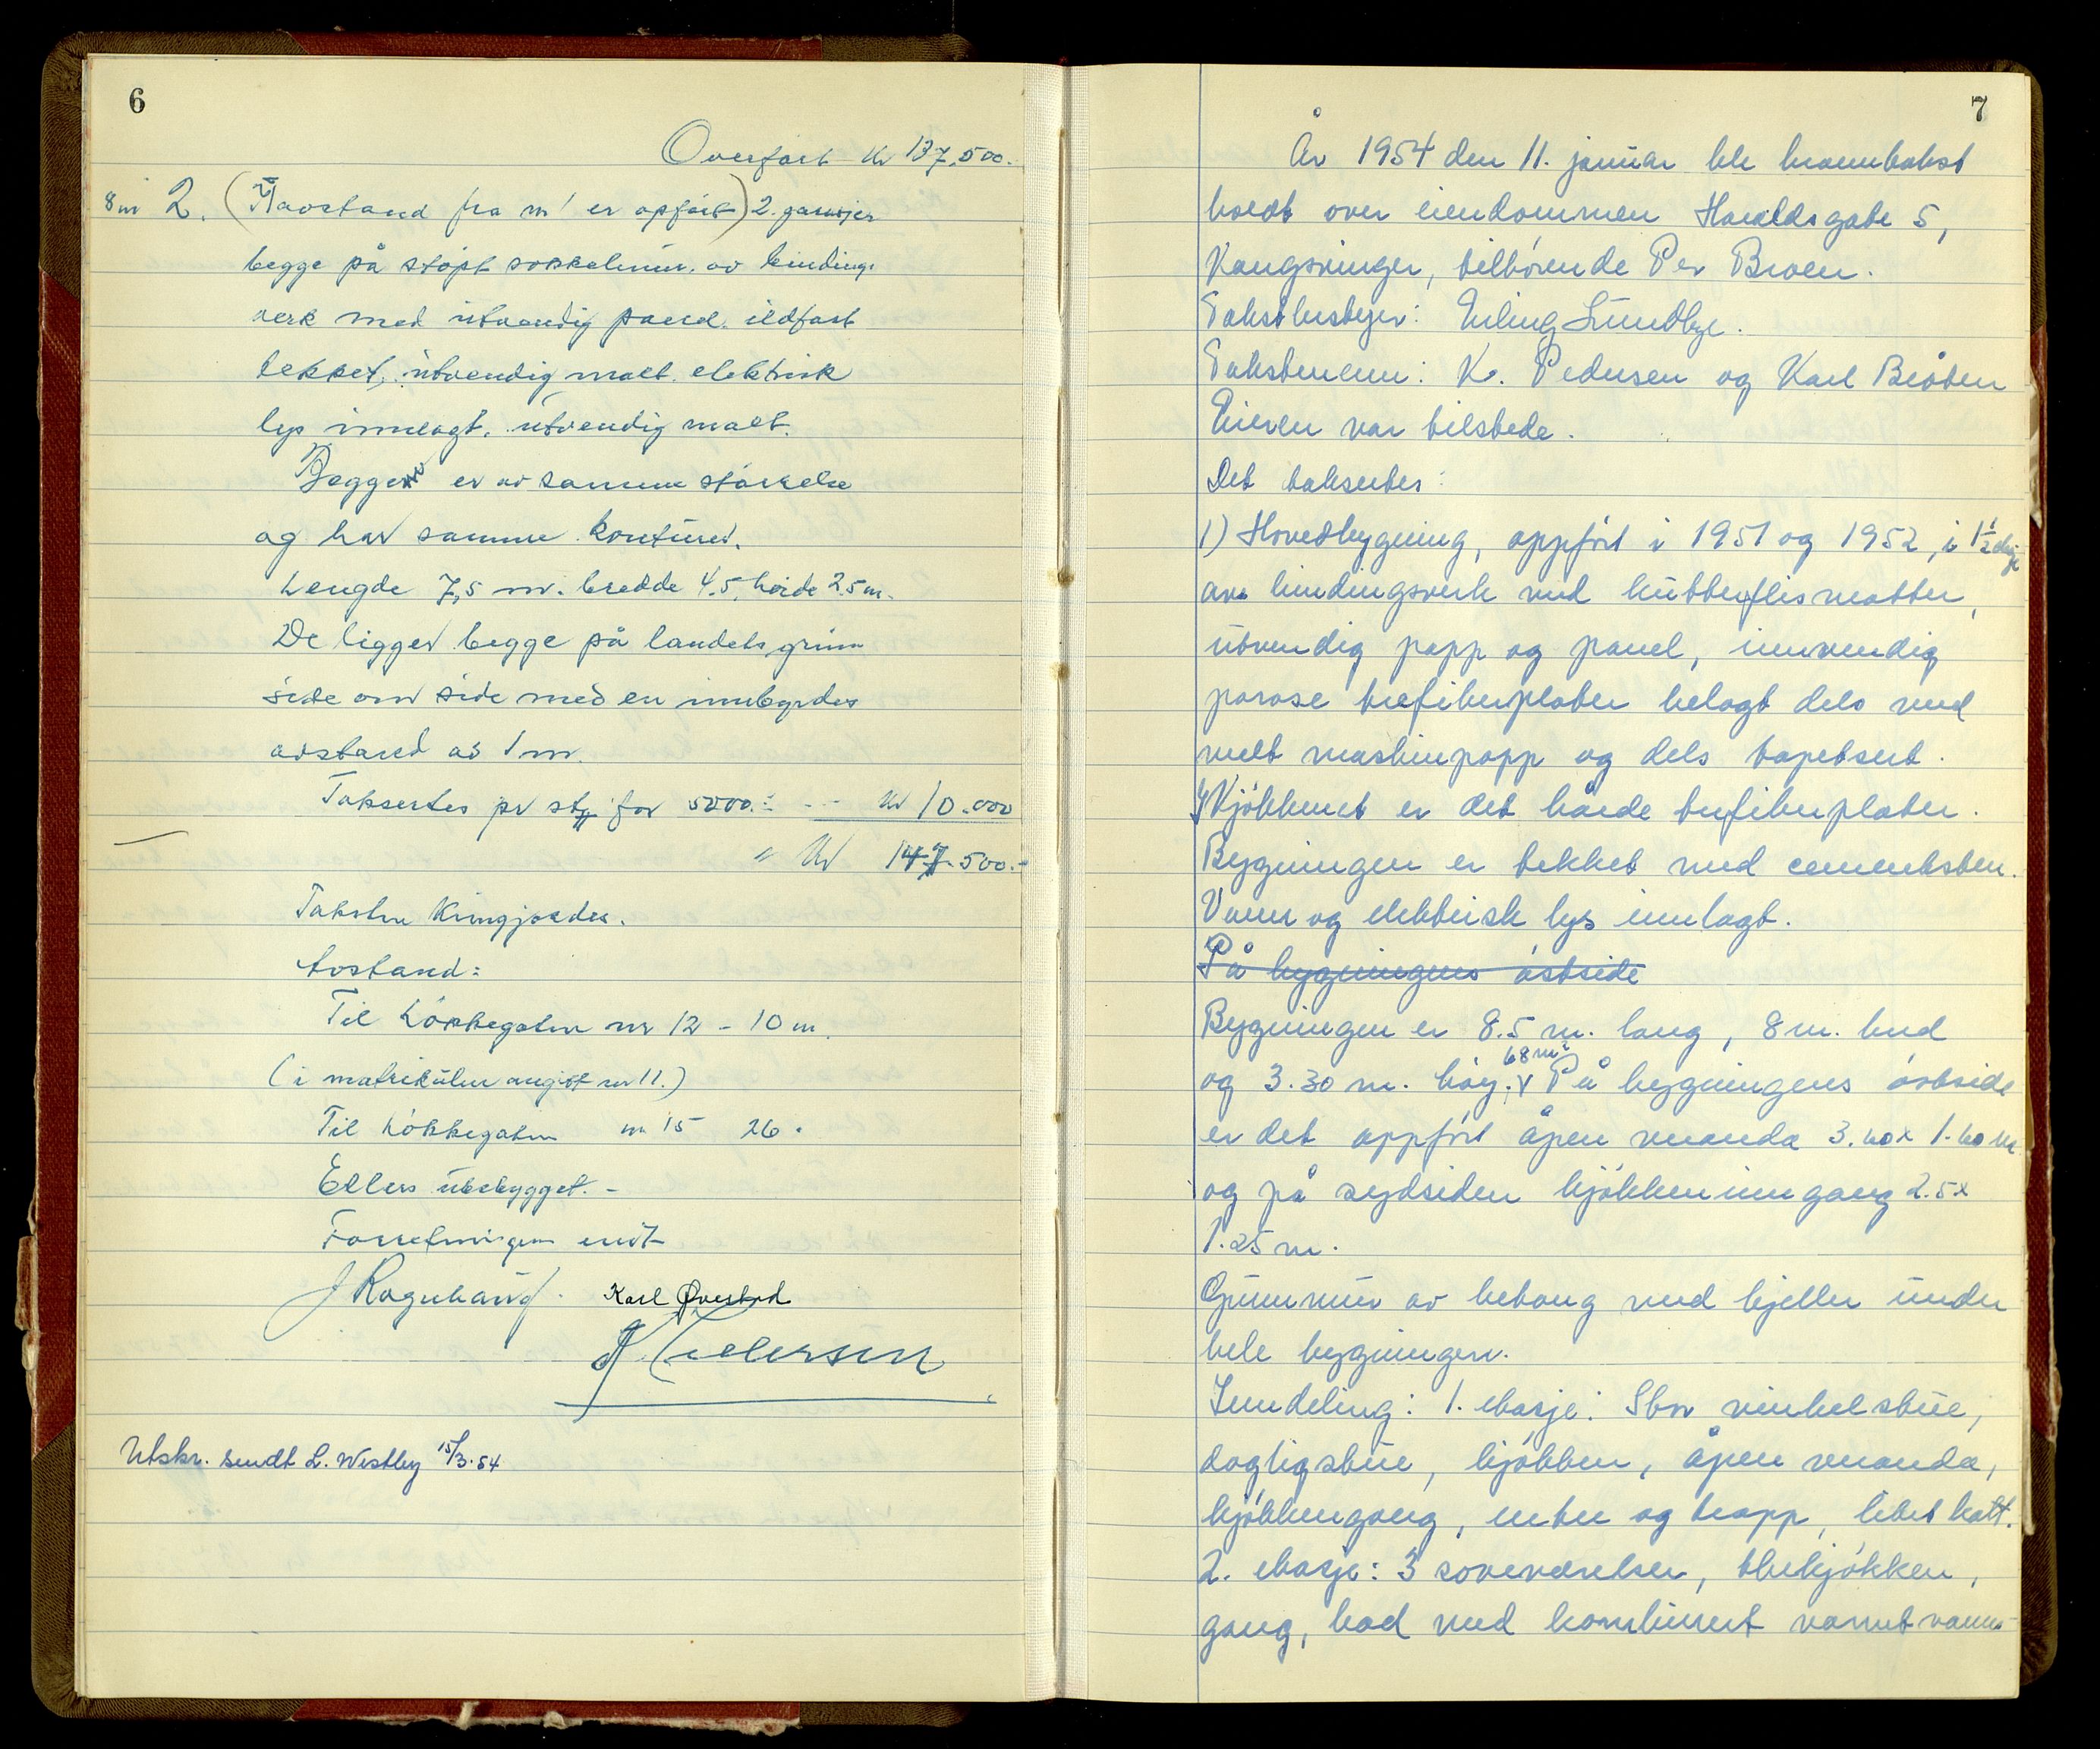 6
Overført kr 137.500.-
8 m 2. (Navstand fra nr 1 er opført) 2. garasjer
begge på støpt sokkelmur. av bindings
verk med utvendig panel. ildfast
tekket, utvendig malt. elektrisk
lys innlagt. utvendig malt.
Begge er av samme størrelse
og har samme konturer.
Lengde 7,5 m. bredde 4.5, høide 2.5 m.
De ligger begge på landets grunn
side om side med en innbyrdes
avstand av 1 m.
Taksertes pr stk for 5000.- - - kr 10.000
" Kr 147.500.-
Taksten kungjordes.
Avstand:
Til Løkkegaten nr 12 - 10 m.
(i matrikulen angitt nr 11.)
Til Løkkegaten nr 15 26 "
Ellers ubebygget. -
Forretningen endt
Karl Øverbød
K Pedersen
Utskr. sendt L. Westby 15/3-54
7
År 1954 den 11. januar ble branntakst
holdt over eiendommen Haraldsgate 5,
Kongsvinger, tilhørende Per Braen.
Takstbestyrer: Erling Lundbye.
Takstmenn: K. Pedersen og Karl Bråten
Eieren var tilstede.
Det taksertes:
1) Hovedbygning, oppført i 1951 og 1952, i 1½ etsje
av bindingsverk med kubbeflismatter,
utvendig papp og panel, innvendig
porøse trefiberplater belagt dels med
malt maskinpapp og dels tapetsert.
I Kjøkkenet er det hårde trefiberplater.
Bygningen er tekket med cementsten.
Vann og elektrisk lys innlagt.
På bygningens østside
Bygningen er 8.5 m. lang, 8 m. bred
og 3.30 m. høy. 68 m² På bygningens østside
er det oppført åpen veranda 3.40 x 1.40 m
og på sydsiden kjøkkeninngang 2.5 x
1.25 m.
Grunnmur av betong med kjeller under
hele bygningen.
Inndeling: 1. etasje: Stor vinkelstue,
dagligstue, kjøkken, åpen veranda,
kjøkkengang, entre og trapp, litet kott.
2. etasje: 3 soveværelser, tekjøkken,
gang, bad med kombinert varmtvanns-